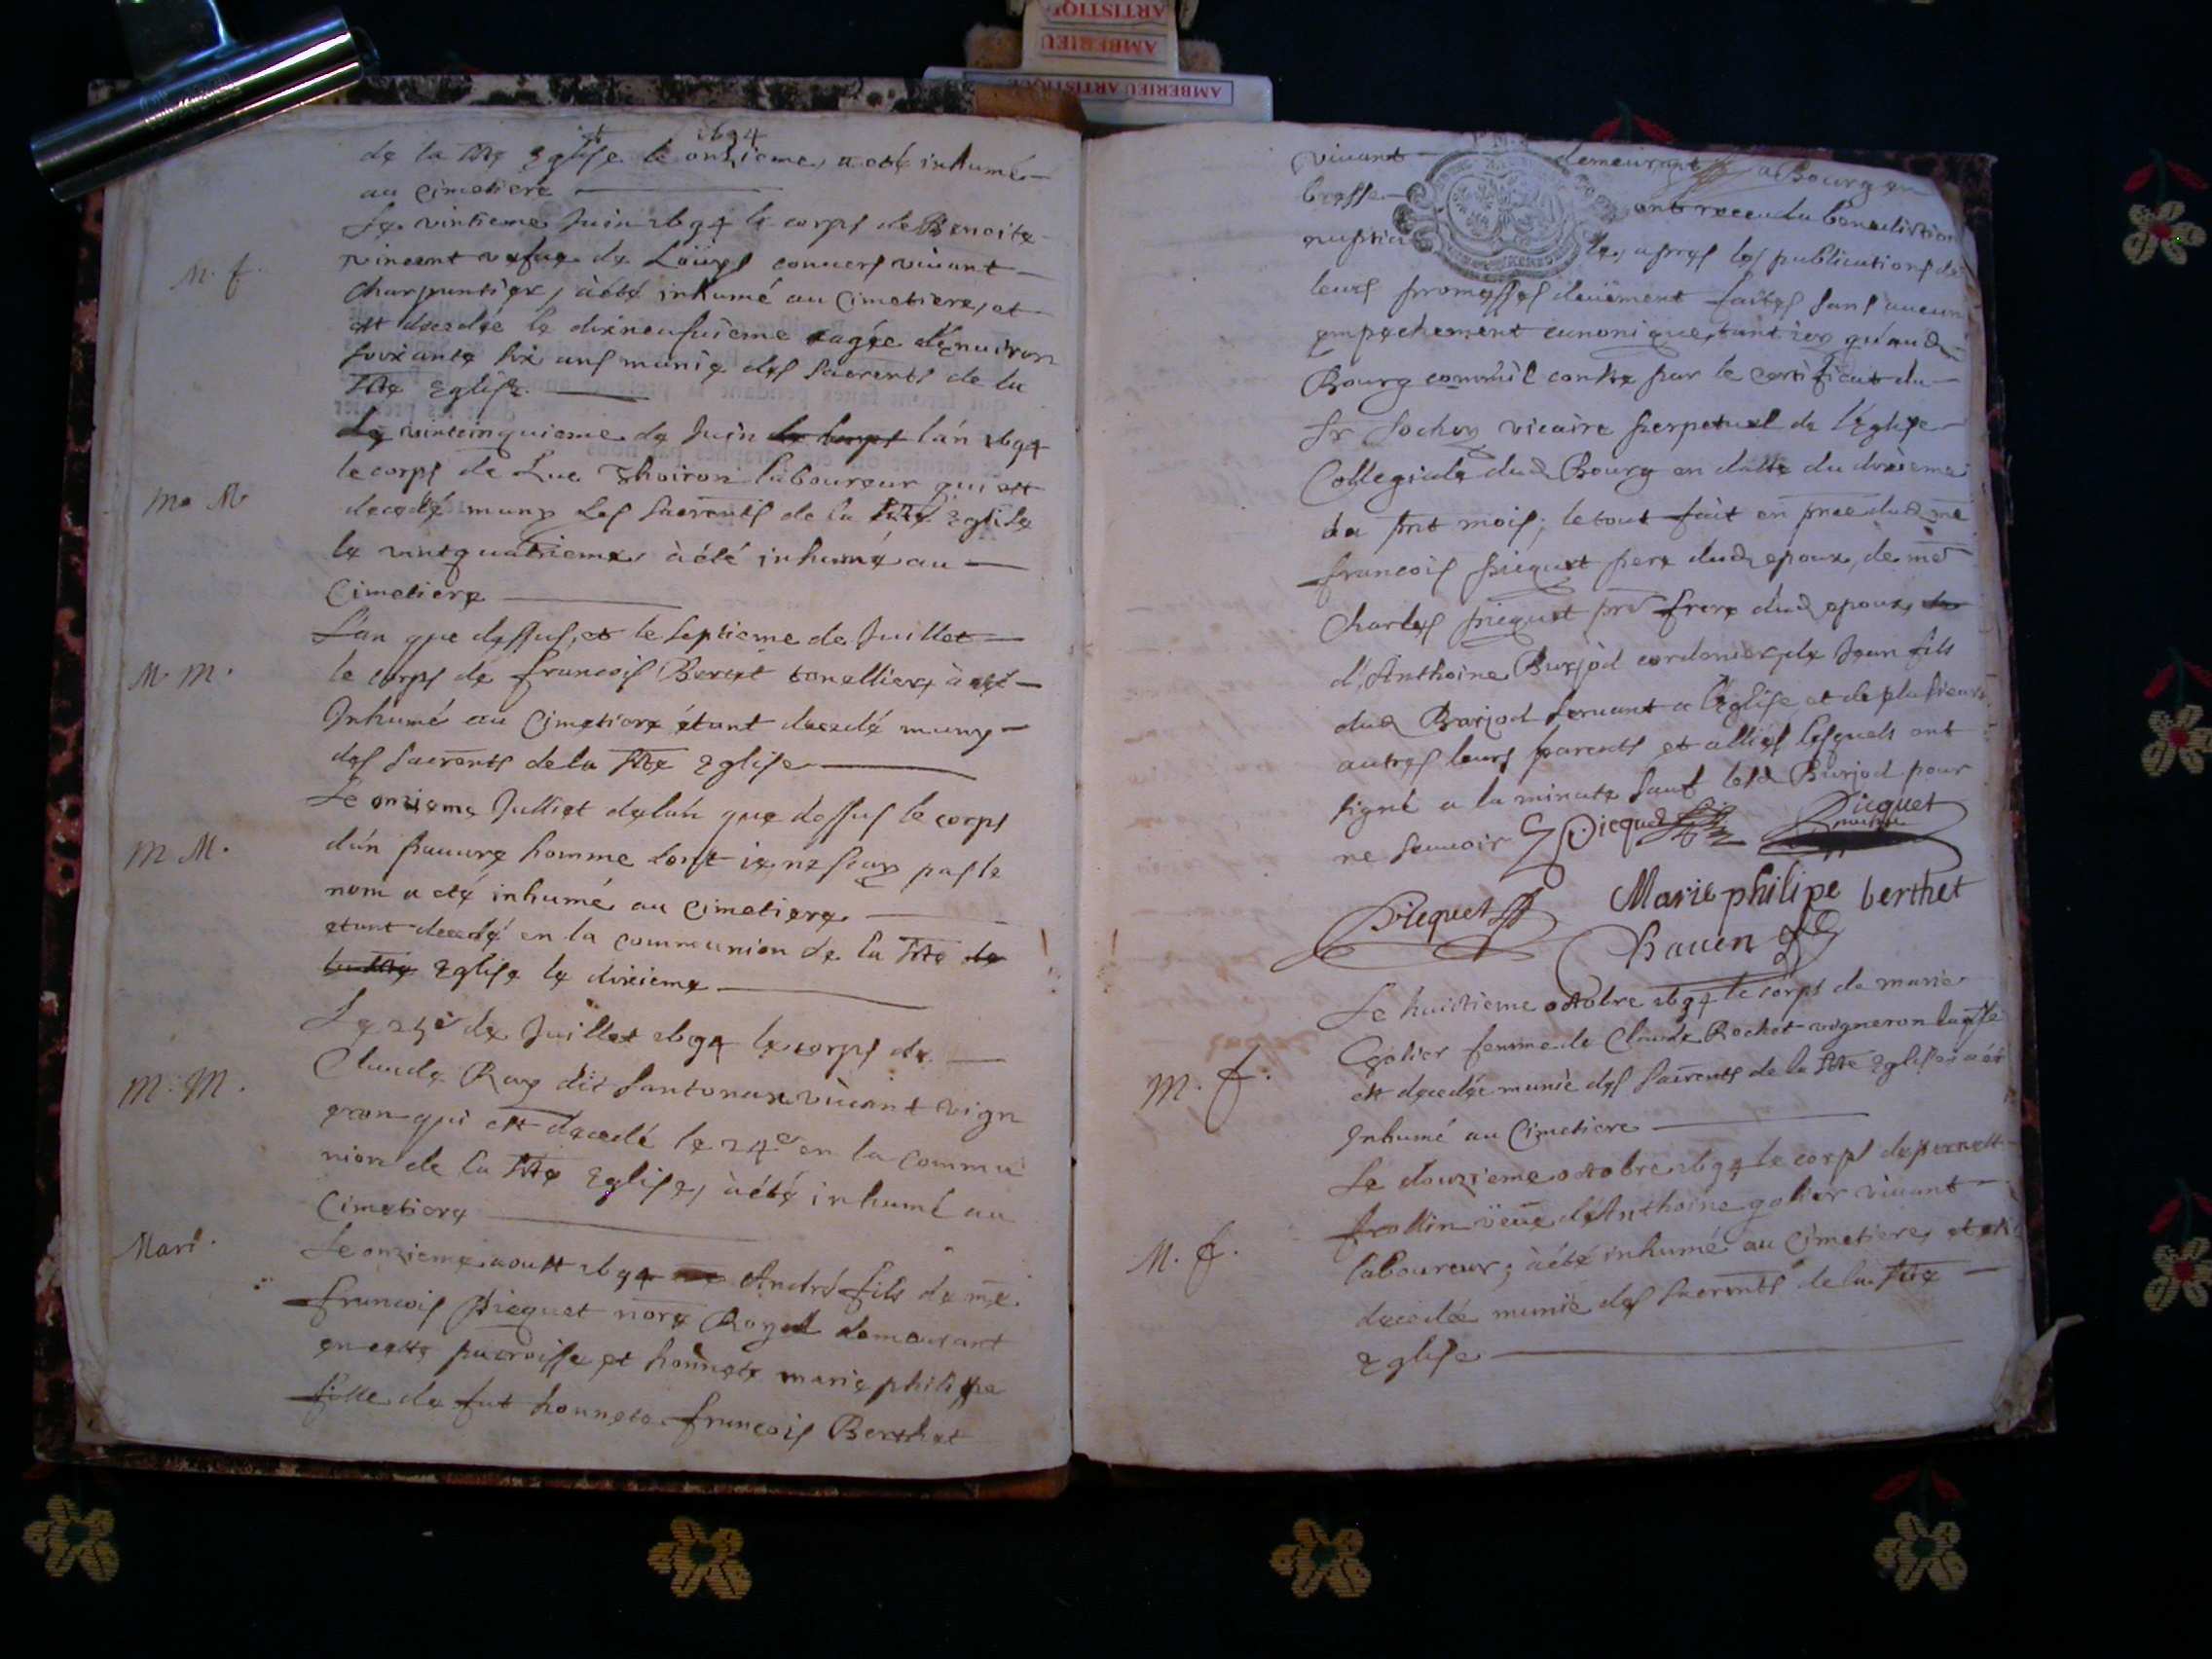 1694
de la Ste Eglise le onzieme, a esté inhumé
au Cimetiere
Le vintieme Juin 1694 le corps de Benoite
M. f.
vincent vefue de Loüys conuers viuant
Charpentier, à été inhumé au Cimetiere, et
est decedée le dixneufuieme agée d'enuiron
soixante six ans munie des Sacrents de la
Ste Eglise.
Le vintcinquieme de Juin le corps l'an 1694
le corps de Luc Thoiron laboureur qui est
M. M
decedé muny des Sacrents de la Ste Eglise
le vintquatrieme, à été inhumé au
Cimetiere
L'an que dessus, et le septieme de Juillet
M. M.
le corps de francois Beret tonellier, à esté
Inhumé au Cimetiere étant decedé muny
des Sacrents de la Ste Eglise
Le onzieme Julliet de lán que dessus le corps
M M.
dún pauure homme dont ie ne scay pas le
nom a eté inhumé au Cimetiere
etant decedé en la communion de la Ste de
la Ste Eglise le dixieme
Le 25e de Juillet 1694 le corps de
M. M.
Claude Ray dit Santonax viuant vign
eron qui est decedé le 24e en la commu
nion de la Ste Eglise, à été inhumé au
Cimetiere
Mari.
Le onzieme aoust 1694 André fils de me
francois Picquet nore Royal demeurant
en cette parroisse et honnete marie philippe
fille de fut honnete francois Berthet
viuant demeurant a Bourg en
bresse ont receu la benediction
nuptiale, apres les publications de
leurs promesses deuëment faites sans aucun
empechement canonique, tant icy qu'aud
Bourg comm'il conste par le certificat du
Sr Sochon vicaire perpetuel de l'Eglise
Collegiale dud Bourg en datte du dixieme
du pnt mois; le tout fait en pnce dud me
francois Picquet pere dud epoux, de me
Charles Picquet pre frere dud epoux, de
d'Anthoine Burjod cordonier, de Jean fils
dud Burjod seruant a l'eglise et de plusieurs
autres leurs parents et alliés lesquels ont
signé a la minute sauf led Burjod pour
ne scauoir Picquet Picquet
Picquet Marie philipe berthet
Le huictieme octobre 1694 le corps de marie
Golier femme de Claude Rochet vigneron laqlle
M. f.
est decedée munie des Sacrents de la Ste Eglise, a été
Inhumé au Cimetiere
Le douzieme octobre 1694 le corps de pernett
veüe d'Anthoine golier viuant
M. f.
laboureur; à été inhumé au Cimetiere, et est
decedée munie des Sacrents de la Ste
Eglise
AMBERIEU ARTISTIQUE
AMBERIEU
ARTISTIQUE